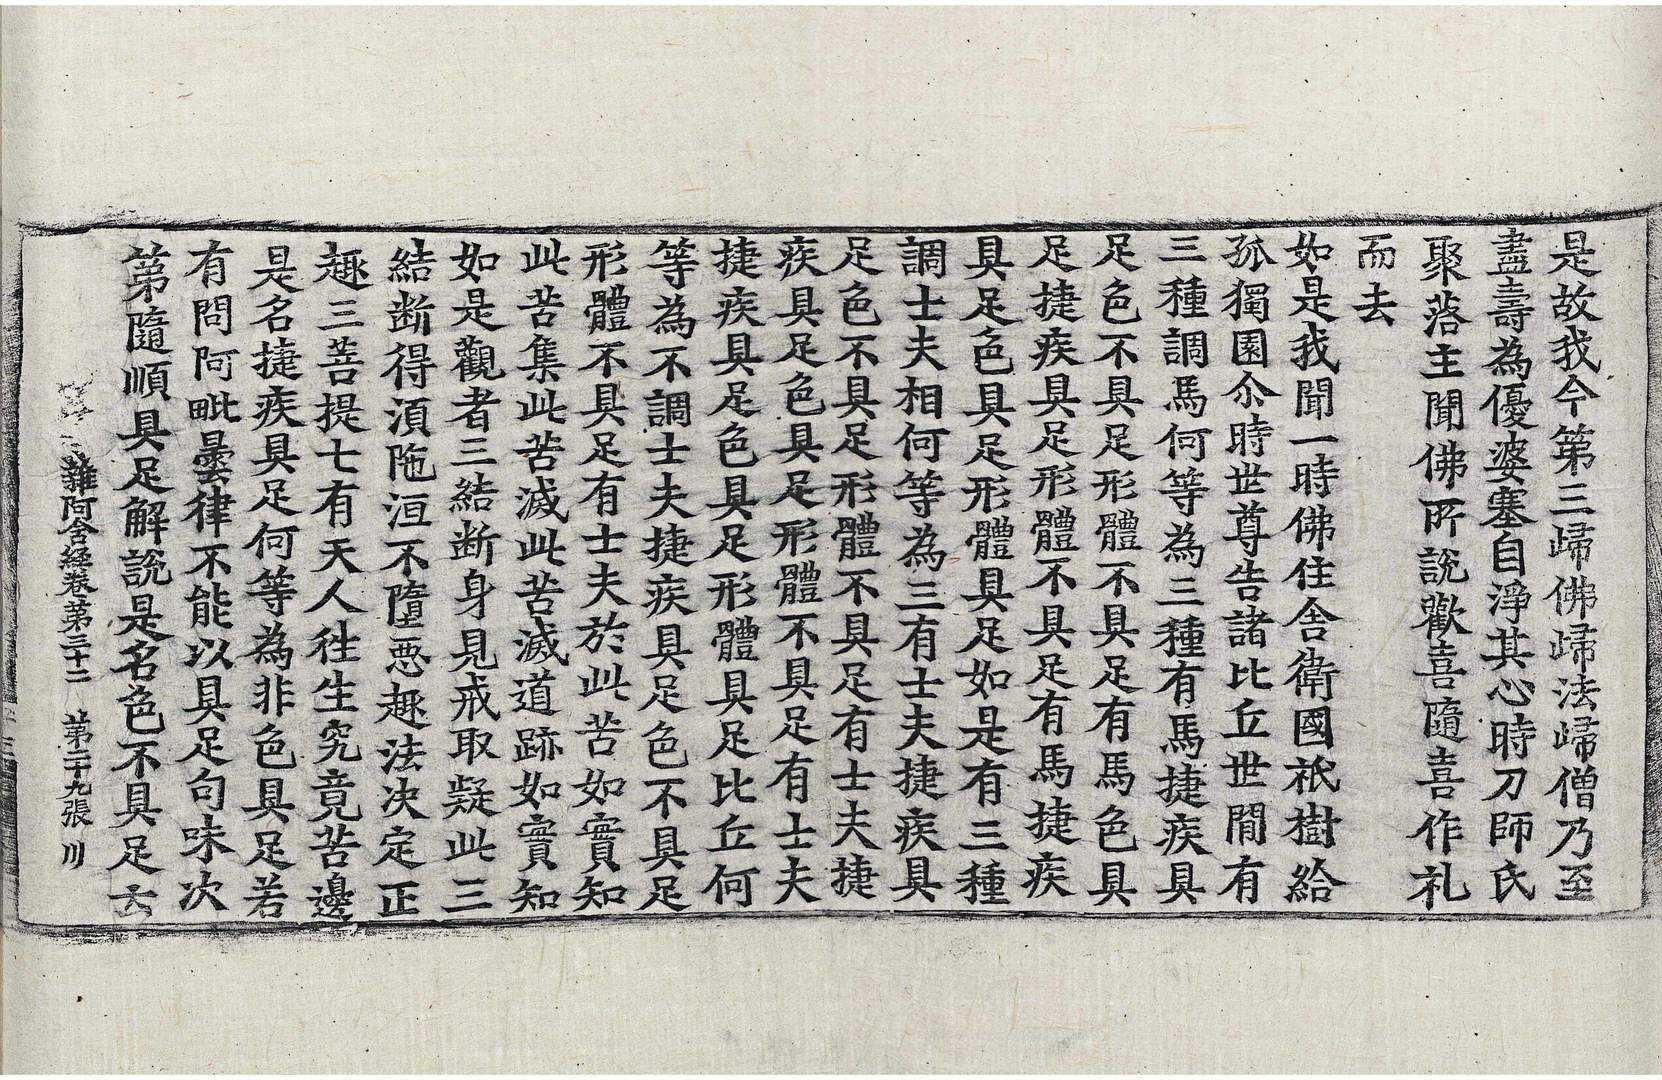 是故我今第三歸佛歸法歸僧乃至
盡壽為優婆塞自淨其心時刀師氏
聚落主聞佛所說歡喜隨喜作礼
而去
如是我聞一時佛住舍衛國祇樹給
孤獨園尒時世尊告諸比丘世間有
三種調馬何等為三種有馬捷疾具
足色不具足形體不具足有馬色具
足捷疾具足形體不具足有馬捷疾
具足色具足形體具足如是有三種
調士夫相何等為三有士夫捷疾具
足色不具足形體不具足有士夫捷
疾具足色具足形體不具足有士夫
捷疾具足色具足形體具足比丘何
等為不調士夫捷疾具足色不具足
形體不具足有士夫於此苦如實知
此苦集此苦滅此苦滅道跡如實知
如是觀者三結断身見戒取疑此三
結断得湏陁洹不墮惡趣法决定正
趣三菩提七有天人徃生究竟苦邊
是名捷疾具足何等為非色具足若
有問阿毗曇律不能以具足句味次
第隨順具足解說是名色不具足云
雜阿含経卷第三十二 第二十九張 川